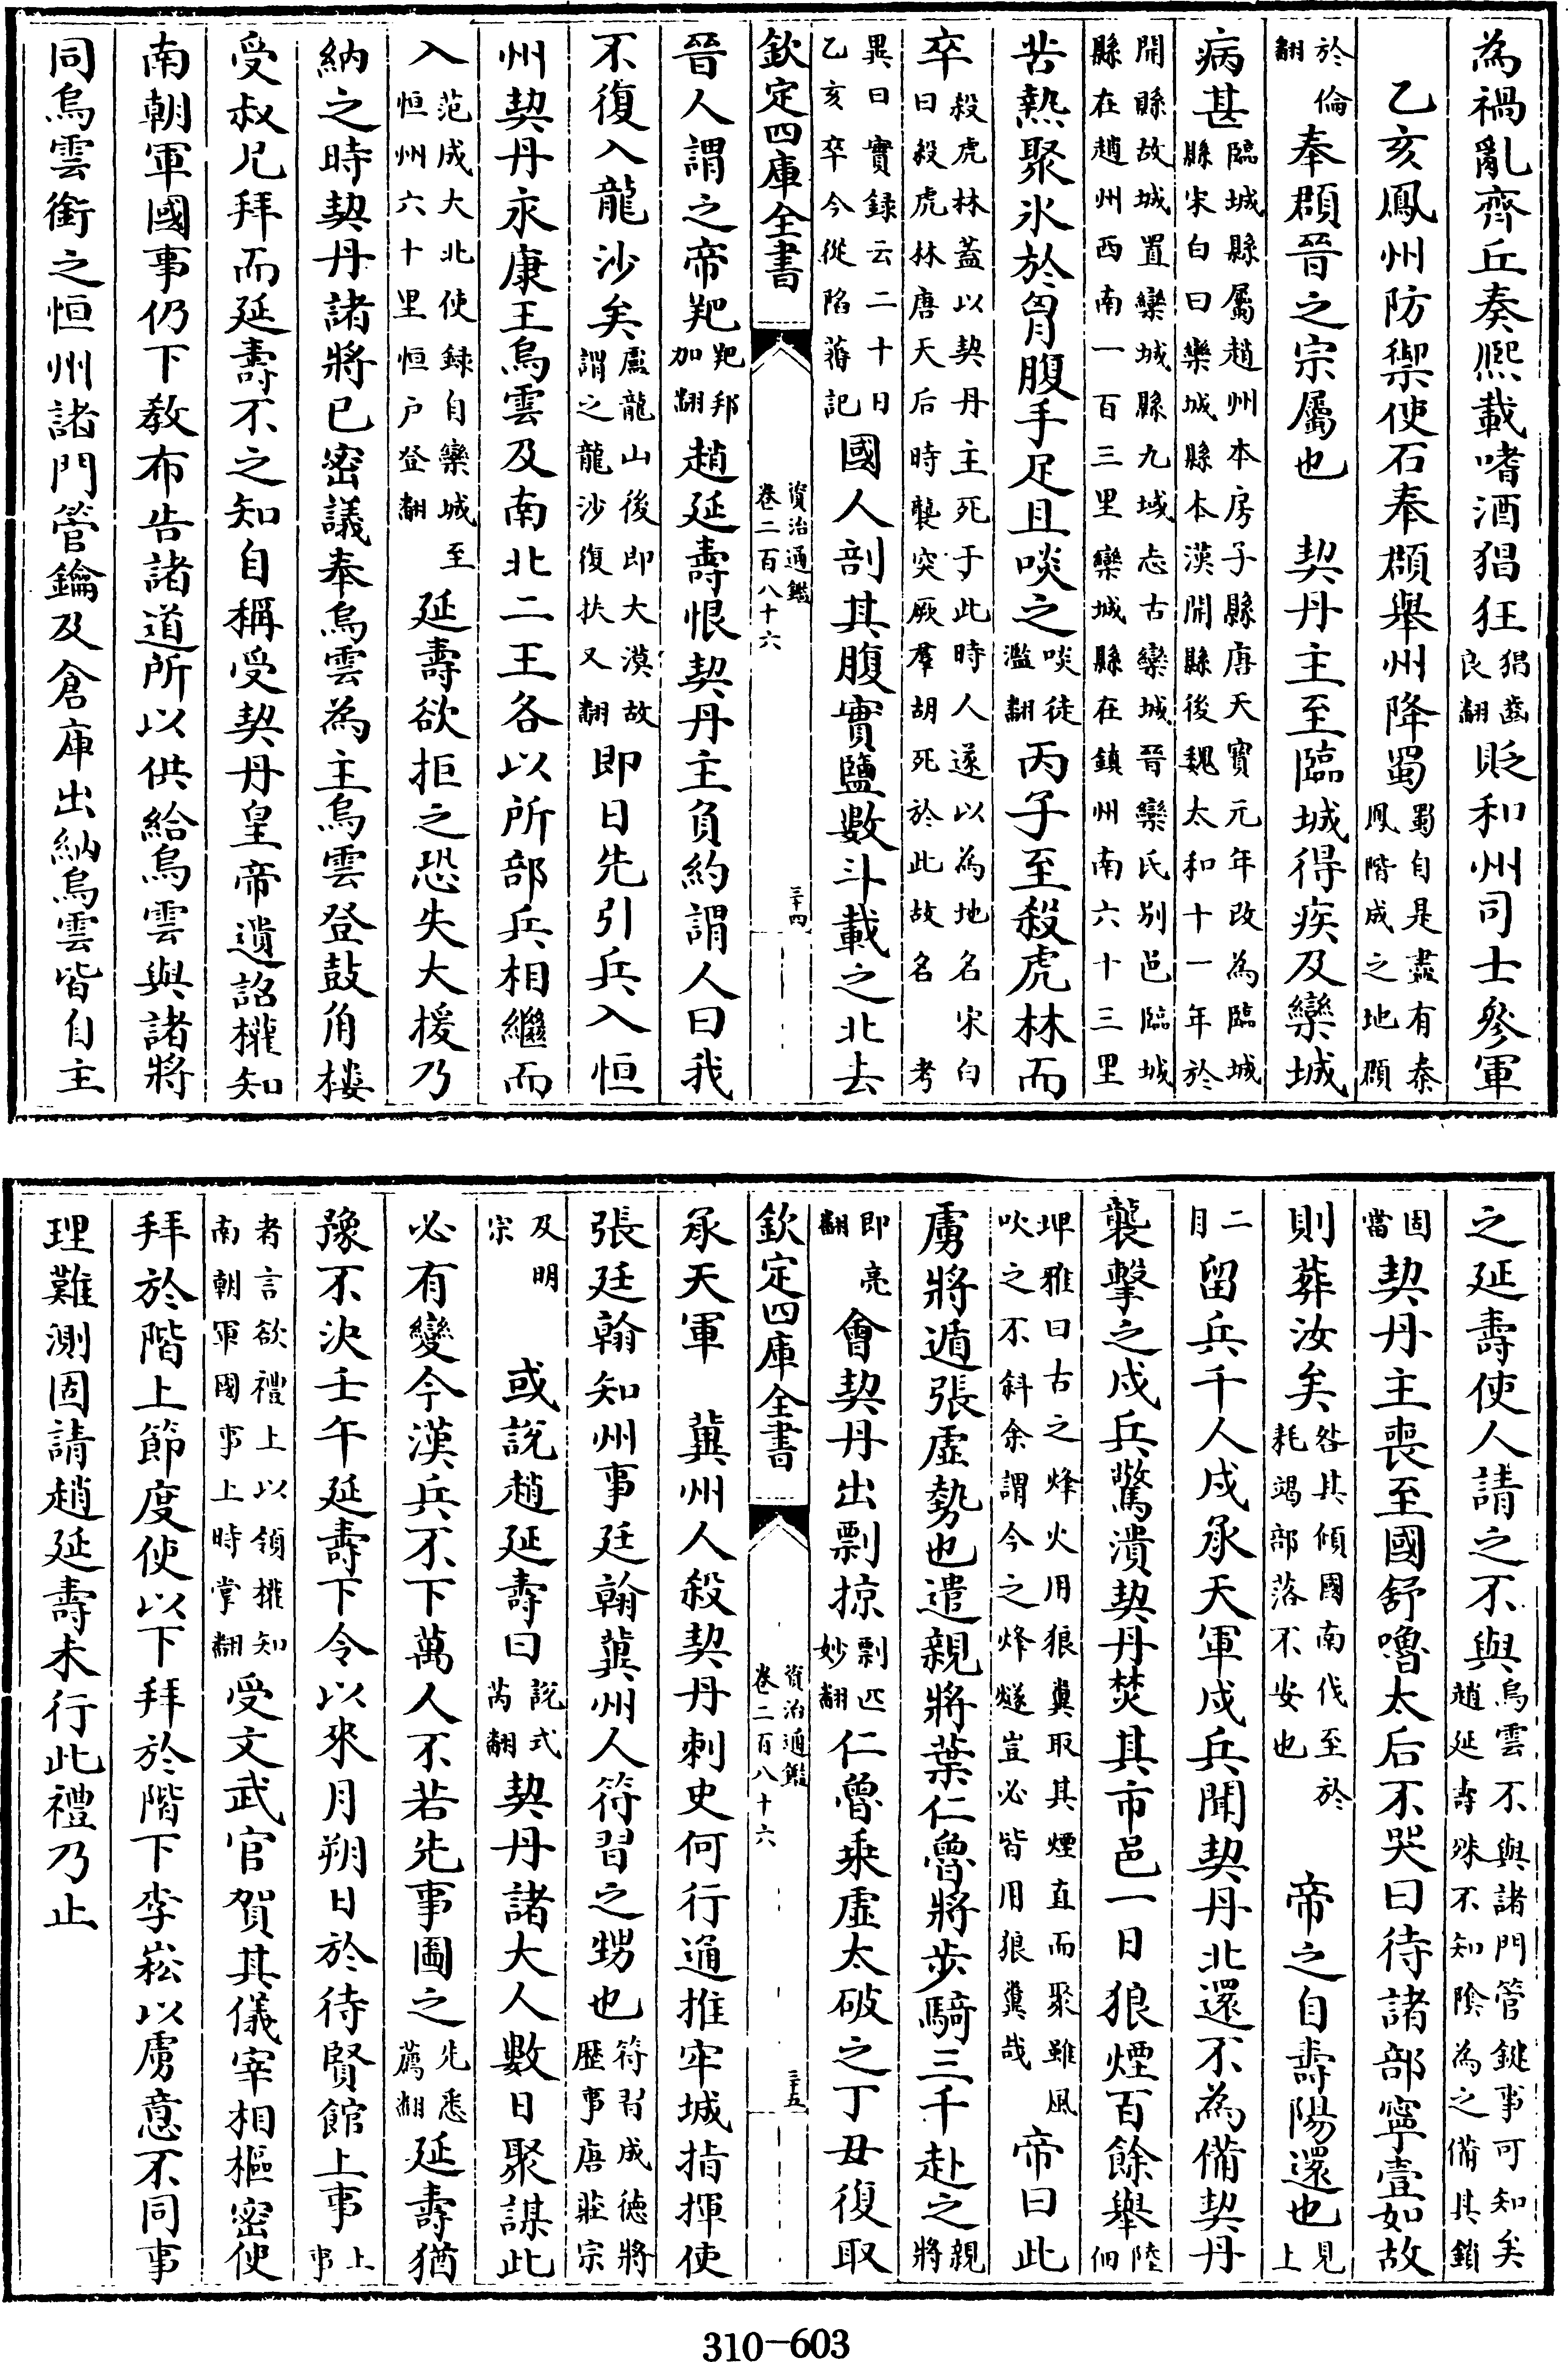 為禍亂齊丘奏熙載嗜酒猖狂猖齒良翻貶和州司士參軍
乙亥鳳州防禦使石奉頵舉州降蜀蜀自是盡有秦鳳階成之地頵
於倫翻奉頵晉之宗屬也　契丹主至臨城得疾及欒城
病甚臨城縣屬趙州本房子縣唐天寶元年改為臨城縣宋白曰欒城縣本漢開縣後魏太和十一年於
開縣故城置欒城縣九域志古欒城晉欒氏別邑臨城縣在趙州西南一百三里欒城縣在鎮州南六十三里
苦熱聚氷於胷腹手足且啖之啖徒濫翻丙子至殺虎林而
卒殺虎林蓋以契丹主死于此時人遂以為地名宋白曰殺虎林唐天后時襲突厥羣胡死於此故名　考
異曰實録云二十日乙亥卒今從陷蕃記國人剖其腹實鹽數斗載之北去
欽定四庫全書　資治通鑑卷二百八十六　三十四
晉人謂之帝羓羓邦加翻趙延壽恨契丹主負約謂人曰我
不復入龍沙矣盧龍山後即大漠故謂之龍沙復扶又翻即日先引兵入恒
州契丹永康王烏雲及南北二王各以所部兵相繼而
入范成大北使録自欒城至恒州六十里恒户登翻延壽欲拒之恐失大援乃
納之時契丹諸將已密議奉烏雲為主烏雲登鼓角樓
受叔兄拜而延壽不之知自稱受契丹皇帝遺詔權知
南朝軍國事仍下教布告諸道所以供給烏雲與諸將
同烏雲銜之恒州諸門管鑰及倉庫出納烏雲皆自主
之延壽使人請之不與烏雲不與諸門管鍵事可知矣趙延壽殊不知陰為之備其鎖
固當契丹主喪至國舒嚕太后不哭曰待諸部寧壹如故
則葬汝矣咎其傾國南伐至於耗竭部落不安也　帝之自壽陽還也見上
二月留兵千人戍承天軍戍兵聞契丹北還不為備契丹
襲擊之戍兵驚潰契丹焚其市邑一日狼煙百餘舉陸佃
埤雅曰古之烽火用狼糞取其煙直而聚雖風吹之不斜余謂今之烽燧豈必皆用狼糞哉帝曰此
虜將遁張虛勢也遣親將葉仁魯將步騎三千赴之親將
即亮翻會契丹出剽掠剽匹妙翻仁魯乘虛太破之丁丑復取
欽定四庫全書　資治通鑑卷二百八十六　三十五
承天軍　冀州人殺契丹刺史何行通推牢城指揮使
張廷翰知州事廷翰冀州人符習之甥也符習成德將歷事唐莊宗
及明宗　或說趙延壽曰說式芮翻契丹諸大人數日聚謀此
必有變今漢兵不下萬人不若先事圖之先悉薦翻延壽猶
豫不決壬午延壽下令以來月朔日於待賢館上事上事
者言欲禮上以領權知南朝軍國事上時掌翻受文武官賀其儀宰相樞密使
拜於階上節度使以下拜於階下李崧以虜意不同事
理難測固請趙延壽未行此禮乃止
310-603